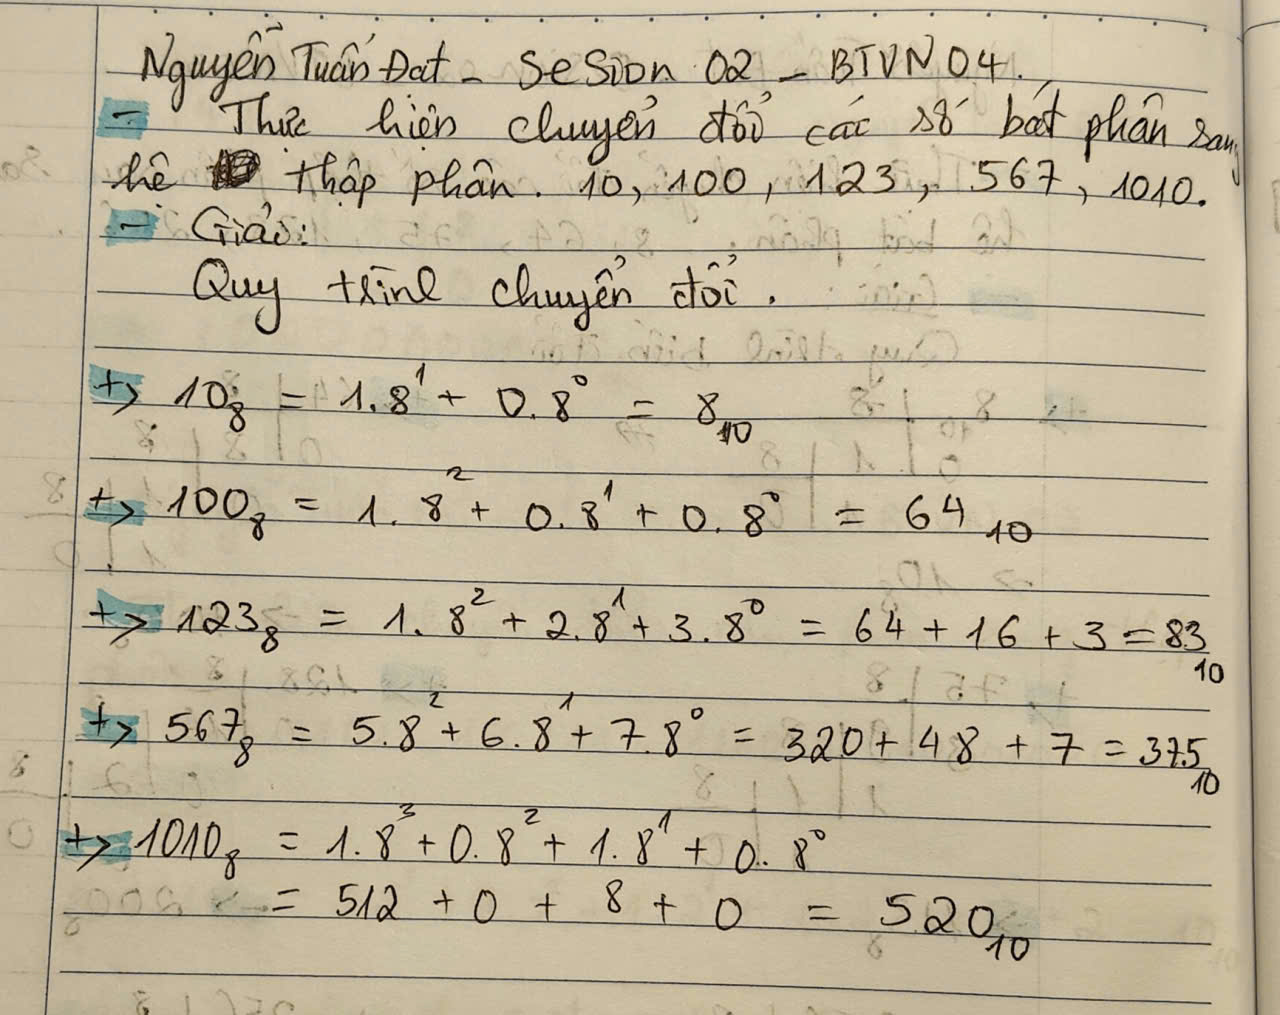 Nguyễn Tuấn Đạt - SeSion 02 - BTVN 04.
- Thực hiện chuyển đổi các số bát phân sang
hệ thập phân. 10, 100, 123, 567, 1010.
- Giải:
Quy trình chuyển đổi.
+> 10₈ = 1.8¹ + 0.8⁰ = 8₁₀
+> 100₈ = 1.8² + 0.8¹ + 0.8⁰ = 64₁₀
+> 123₈ = 1.8² + 2.8¹ + 3.8⁰ = 64 + 16 + 3 = 83₁₀
+> 567₈ = 5.8² + 6.8¹ + 7.8⁰ = 320 + 48 + 7 = 375₁₀
+> 1010₈ = 1.8³ + 0.8² + 1.8¹ + 0.8⁰
= 512 + 0 + 8 + 0 = 520₁₀